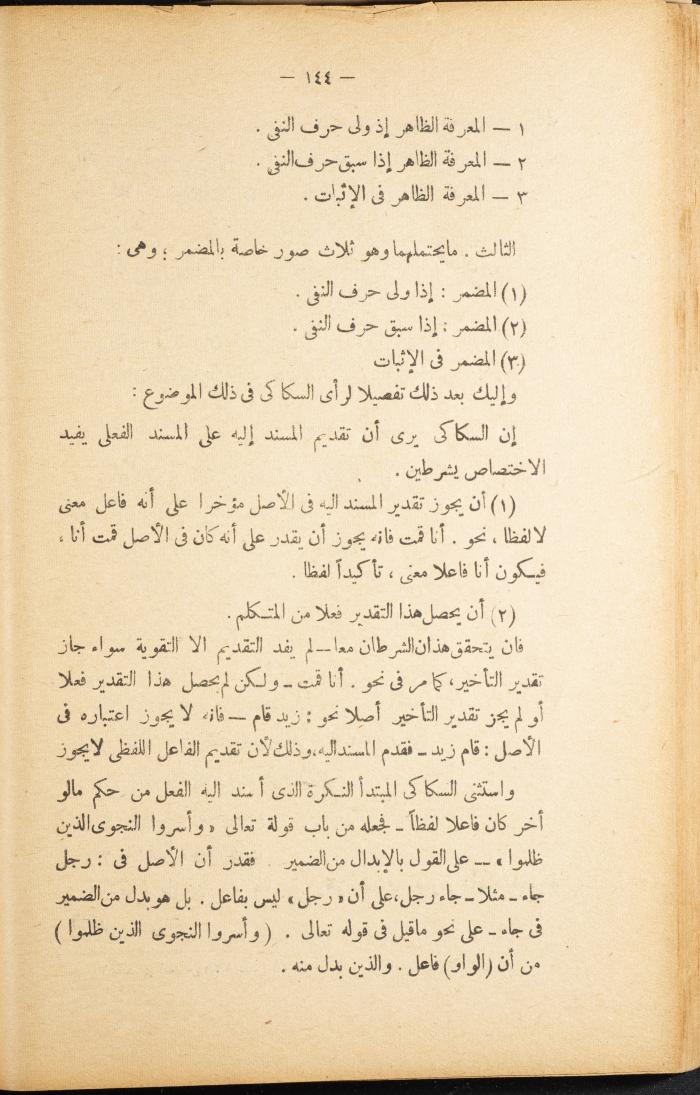 — ١٤٤ —
١ — المعرفة الظاهر إذ ولى حرف النفى .
٢ — المعرفة الظاهر إذا سبق حرف النفى .
٣ — المعرفة الظاهر فى الإثبات .
الثالث . مايحتملهما وهو ثلاث صور خاصة بالمضمر ؛ وهى :
(١) المضمر : إذا ولى حرف النفى .
(٢) المضمر : إذا سبق حرف النفى .
(٣) المضمر فى الإثبات
وإليك بعد ذلك تفصيلا لرأى السكاكى فى ذلك الموضوع :
إن السكاكى يرى أن تقديم المسند إليه على المسند الفعلى يفيد
الاختصاص بشرطين .
(١) أن يجوز تقدير المسند اليه فى الأصل مؤخرا على أنه فاعل معنى
لا لفظا ، نحو . أنا قمت فانه يجوز أن يقدر على أنه كان فى الأصل قمت أنا ،
فيكون أنا فاعلا معنى ، تأكيداً لفظا .
(٢) أن يحصل هذا التقدير فعلا من المتكلم .
فان يتحقق هذان الشرطان معا — لم يفد التقديم الا التقوية سواء جاز
تقدير التأخير، كما مر فى نحو . أنا قمت ـ ولكن لم يحصل هذا التقدير فعلا
أو لم يجز تقدير التأخير أصلا نحو : زيد قام — فانه لا يجوز اعتباره فى
الأصل : قام زيد ـ فقدم المسند اليه، وذلك لأن تقديم الفاعل اللفظى لا يجوز
واستثنى السكاكى المبتدأ النكرة الذى أسند اليه الفعل من حكم مالو
أخر كان فاعلا لفظاً ـ فجعله من باب قولة تعالى « وأسروا النجوى الذين
ظلموا » — على القول بالإبدال من الضمير فقدر أن الأصل فى : رجل
جاء ـ مثلا ـ جاء رجل، على أن « رجل » ليس بفاعل . بل هو بدل من الضمير
فى جاء ـ على نحو ماقيل فى قوله تعالى . ( وأسروا النجوى الذين ظلموا )
من أن (الواو) فاعل . والذين بدل منه .